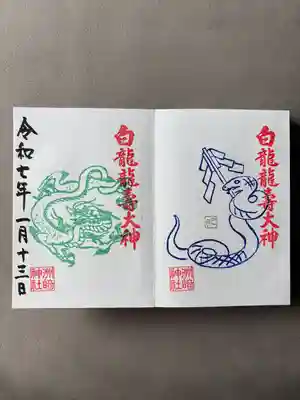 白龍龍寿大神
洲崎
神社
白龍龍寿大神
洲崎
神社
令和七年一月十三日